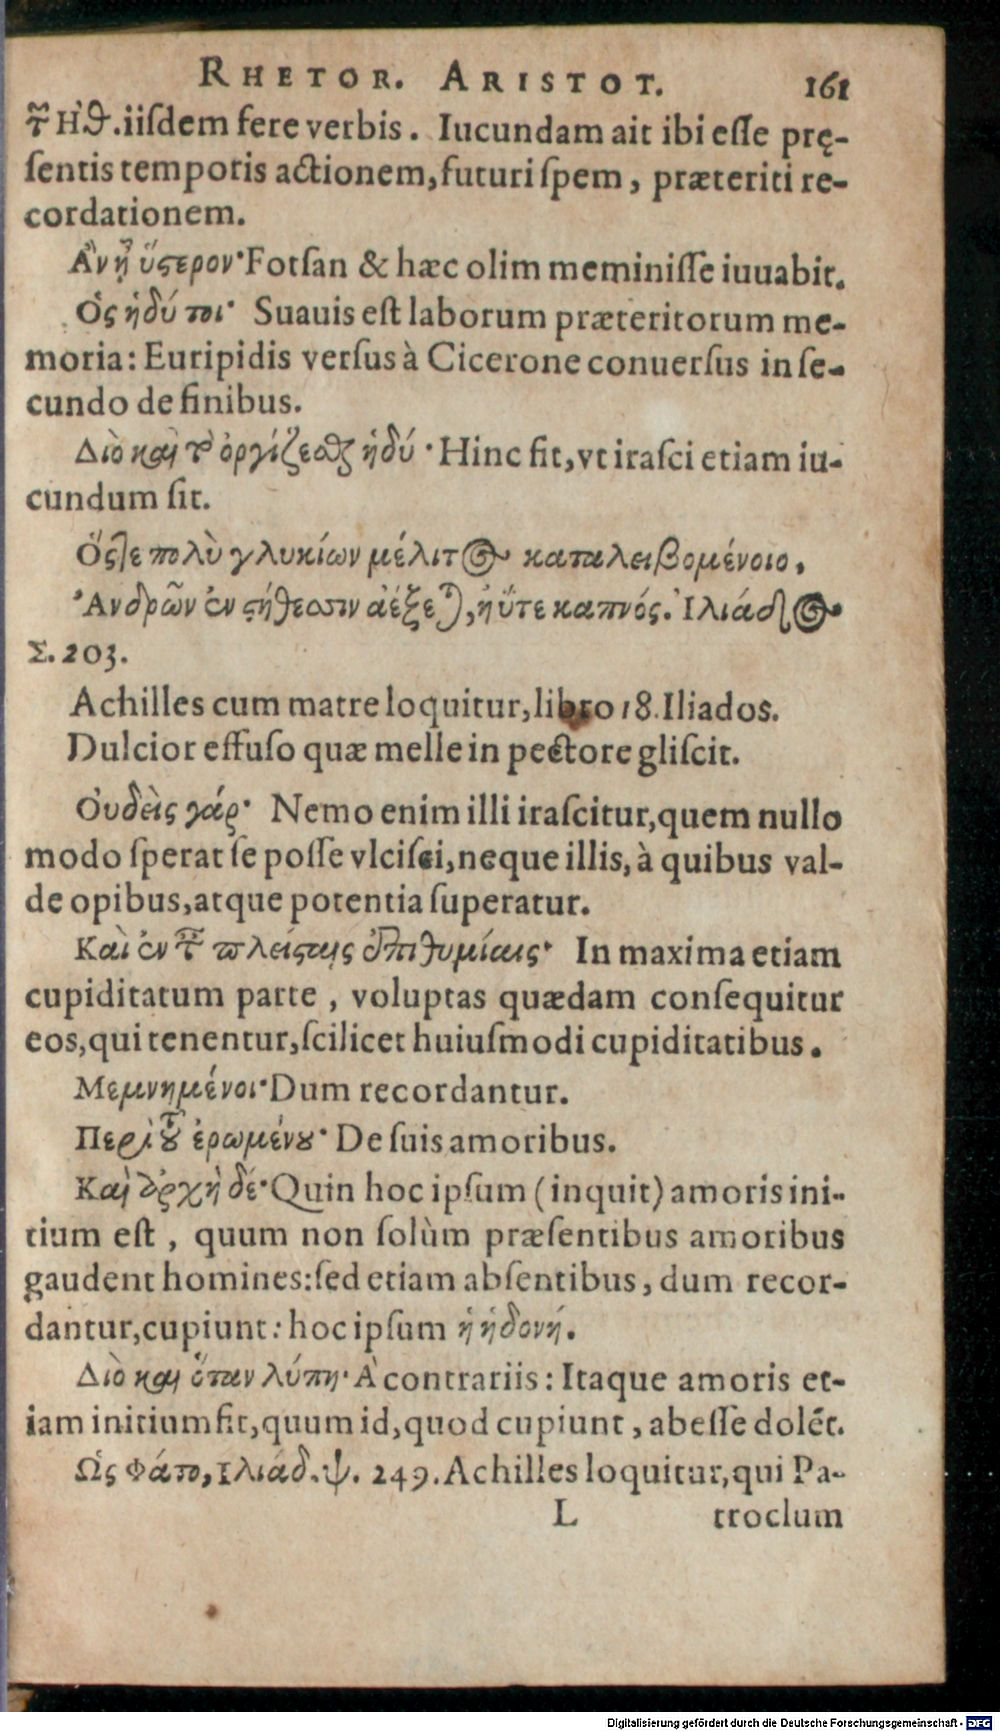 RHETOR. ARISTOT. 161
τῶν Ηθ. iiſdem fere verbis. Iucundam ait ibi eſſe prę-
ſentis temporis actionem, futuri ſpem, præteriti re-
cordationem.
Ἂν ᾖ ὕςερον· Forſan & hæc olim meminiſſe iuuabit.
Ὡς ἡδύ τοι· Suauis eſt laborum præteritorum me-
moria: Euripidis verſus à Cicerone conuerſus in ſe-
cundo de finibus.
Διὸ καὶ τὸ ὀργίζεσθαι ἡδύ· Hinc fit, vt iraſci etiam iu-
cundum ſit.
Ὅςτε πολὺ γλυκίων μέλιτος καταλειβομένοιο,
Ἀνδρῶν ἐν ςήθεσσιν ἀέξεται, ἠΰτε καπνός. Ἰλιάδος
Σ. 203.
Achilles cum matre loquitur, libro 18. Iliados.
Dulcior effuſo quæ melle in pectore gliſcit.
Οὐδεὶς γάρ· Nemo enim illi iraſcitur, quem nullo
modo ſperat ſe poſſe vlciſci, neque illis, à quibus val-
de opibus, atque potentia ſuperatur.
Καὶ ἐν ταῖς πλείςαις ἐπιθυμίαις· In maxima etiam
cupiditatum parte, voluptas quædam conſequitur
eos, qui tenentur, ſcilicet huiuſmodi cupiditatibus.
Μεμνημένοι· Dum recordantur.
Περὶ τοῦ ἐρωμένου· De ſuis amoribus.
Καὶ ἀρχὴ δέ· Quin hoc ipſum (inquit) amoris ini-
tium eſt, quum non ſolùm præſentibus amoribus
gaudent homines: ſed etiam abſentibus, dum recor-
dantur, cupiunt: hoc ipſum ἡ ἡδονή.
Διὸ καὶ ὅταν λύπη· À contrariis: Itaque amoris et-
iam initium fit, quum id, quod cupiunt, abeſſe dolẽt.
Ὣς Φάτο, Ιλιάδ. ψ. 249. Achilles loquitur, qui Pa-
L troclum
Digitalisierung gefördert durch die Deutsche Forschungsgemeinschaft - DFG